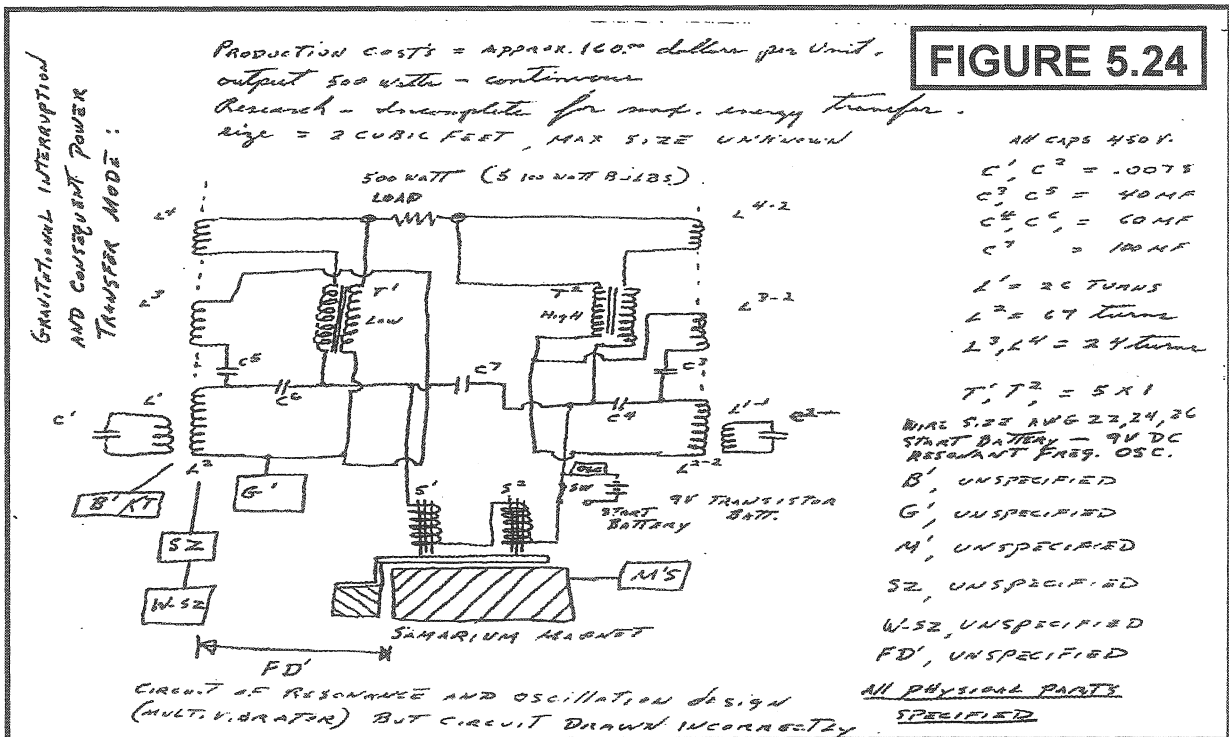 FIGURE 5.24
GRAVITATIONAL INTERRUPTION
AND CONSEQUENT POWER
TRANSFER MODE:
PRODUCTION COSTS = APPROX. 160.00 dollars per Unit.
output 500 watts - continuous
Research - incomplete for max. energy transfer.
size = 2 CUBIC FEET, MAX SIZE UNKNOWN
500 WATT (5 100 WATT BULBS)
LOAD
L4
L4-2
T1
LOW
T2
HIGH
L3-2
C5
C6
C7
C4
C3
C1
L1
L2
L1-1
C2
L2-2
B1/KT
G1
SZ
W-SZ
S1
S2
OSC
SW
START
BATTERY
9V TRANSISTOR
BATT.
M'S
SAMARIUM MAGNET
FD'
CIRCUIT OF RESONANCE AND OSCILLATION design
(MULTIVIBRATOR) BUT CIRCUIT DRAWN INCORRECTLY
All CAPS 450 V.
C1, C2 = .0075
C3, C5 = 40 MF
C4, C6, = 60 MF
C7 = 100 MF
L1 = 26 TURNS
L2 = 67 turns
L3, L4 = 24 turns
T1, T2, = 5 X 1
WIRE SIZE AWG 22, 24, 26
START BATTERY - 9V DC
RESONANT FREQ. OSC.
B', UNSPECIFIED
G', UNSPECIFIED
M', UNSPECIFIED
SZ, UNSPECIFIED
W-SZ, UNSPECIFIED
FD', UNSPECIFIED
All PHYSICAL PARTS
SPECIFIED